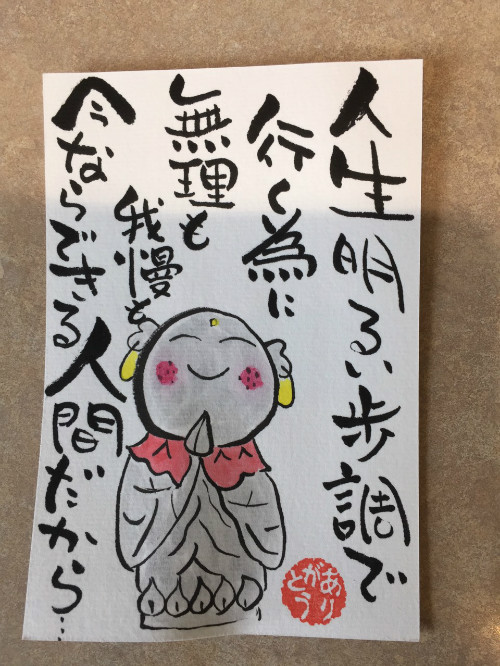 人生明るい歩調で
行く為に
無理も
我慢も
今ならできる人間だから…
ありがとう